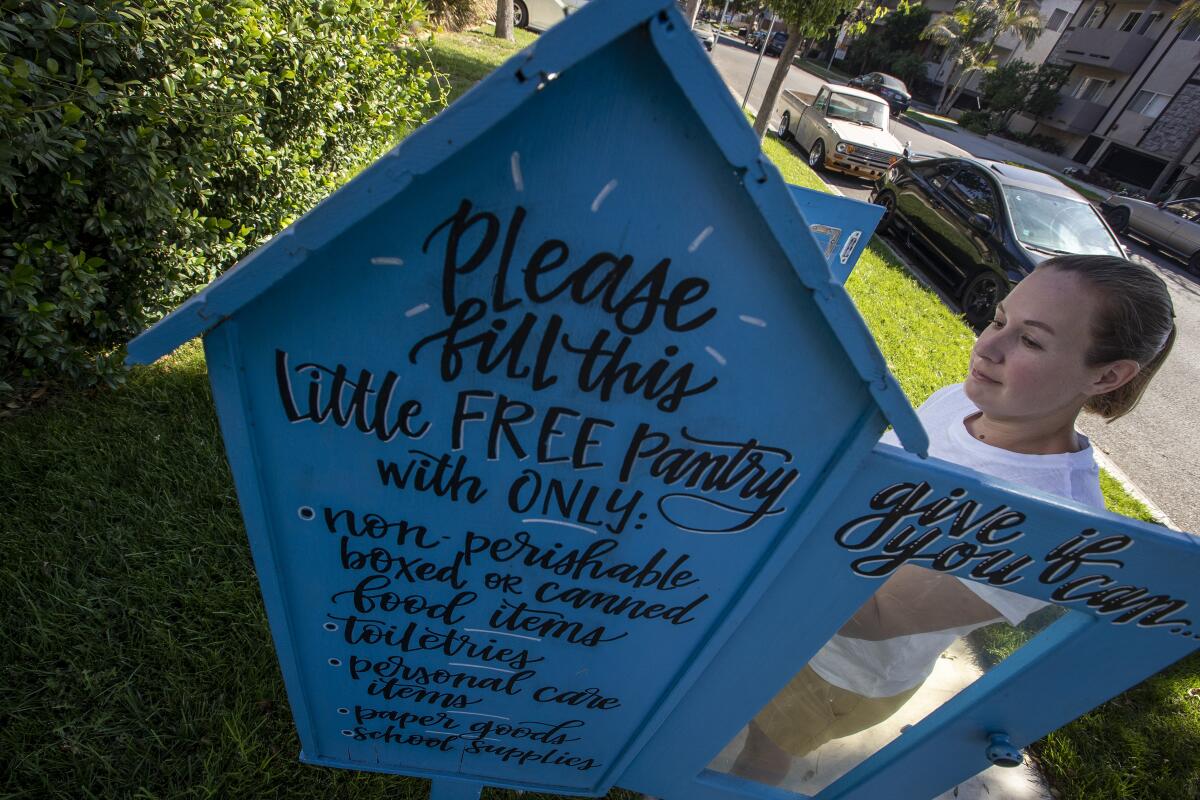 Please
fill this
Little FREE Pantry
with ONLY:
• non-perishable
boxed or canned
food items
• toiletries
• personal care
items
• paper goods
• school supplies
give if
you can...